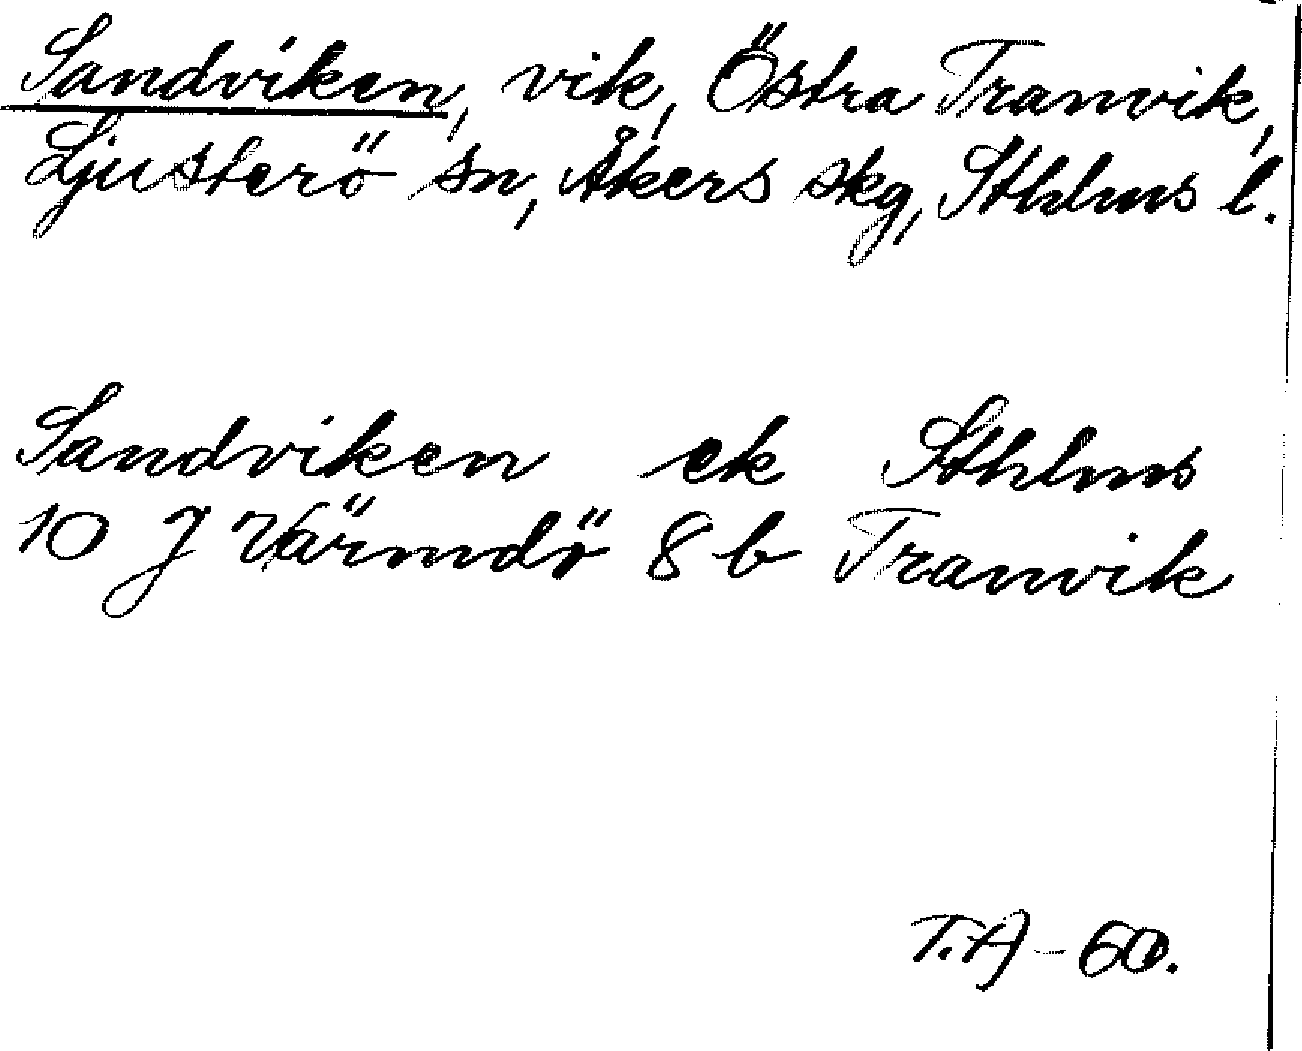 Sandviken, vik, Östra Tranvik,
Ljusterö sn, Åkers skg, Sthlms l.
Sandviken ek Sthlms
10 J Värmdö 8 b Tranvik
T.A - 60.